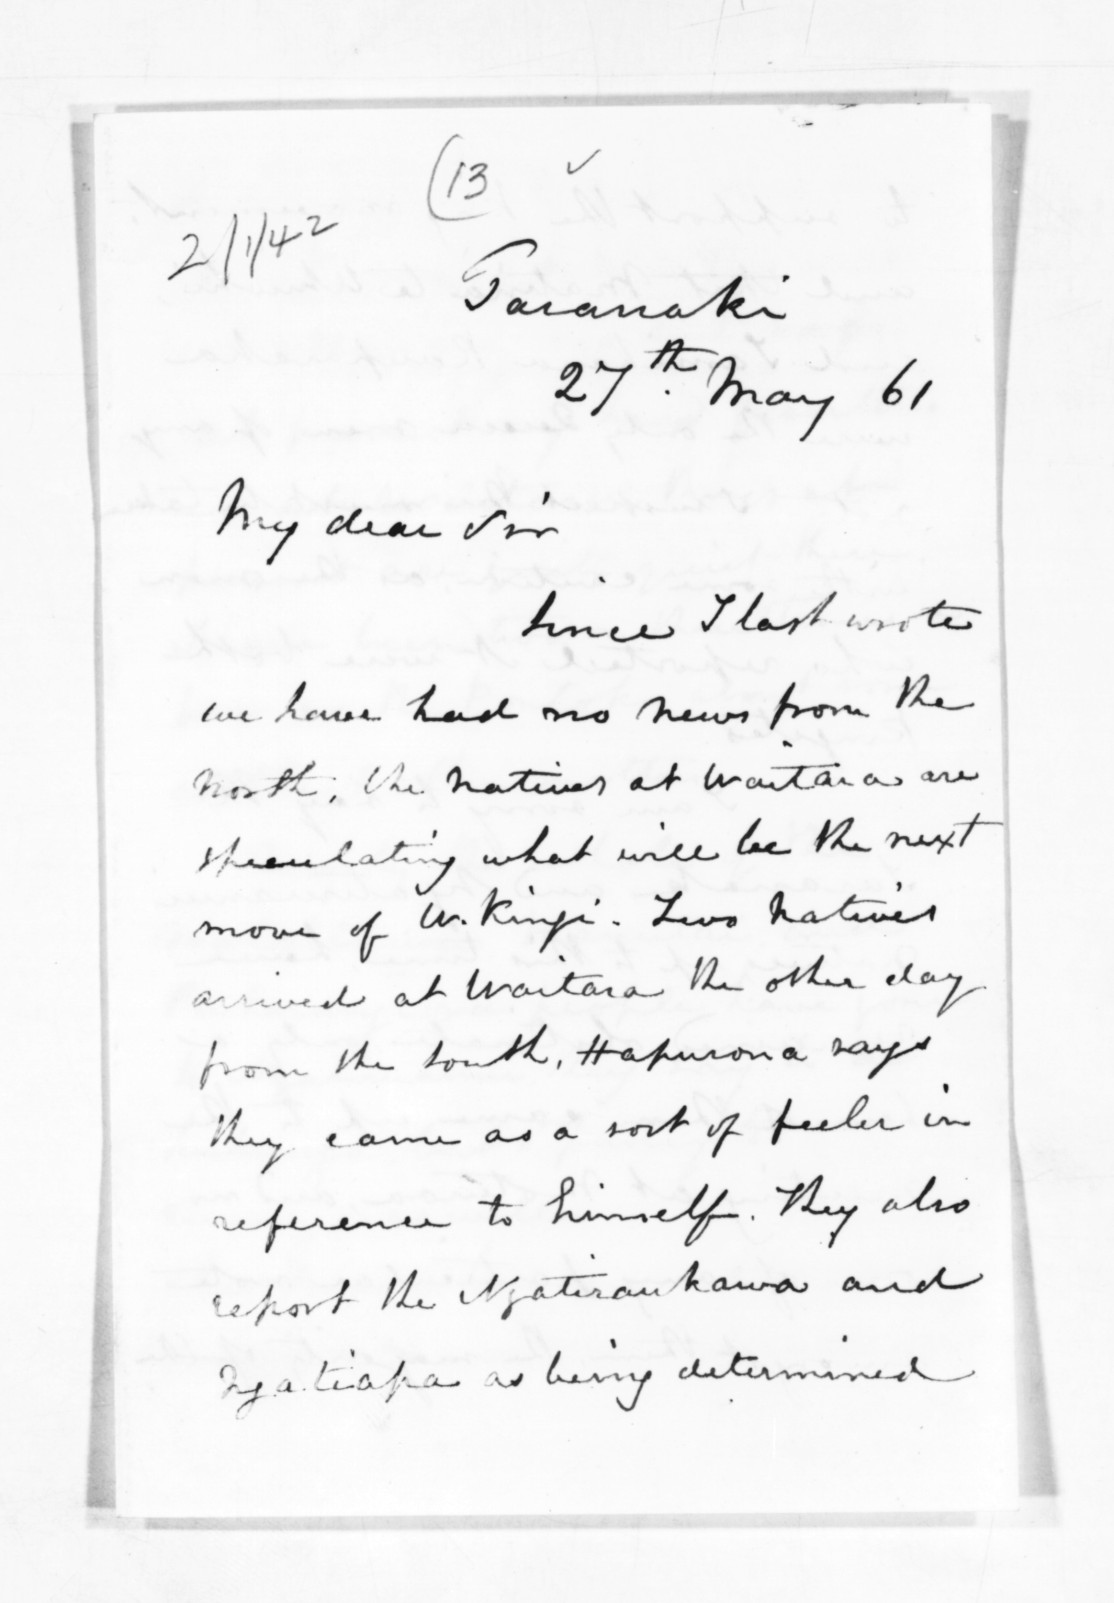 (13 ✓
2/1/42
Taranaki
27th. May 61
My dear Sir
Since I last wrote
we have had no news from the
north, the natives at Waitara are
speculating what will be the next
move of W. Kingi. Two natives
arrived at Waitara the other day
from the south, Hapurona says
they came as a sort of feeler in
reference to himself. They also
report the Ngatiraukawa and
Ngatiapa as being determined